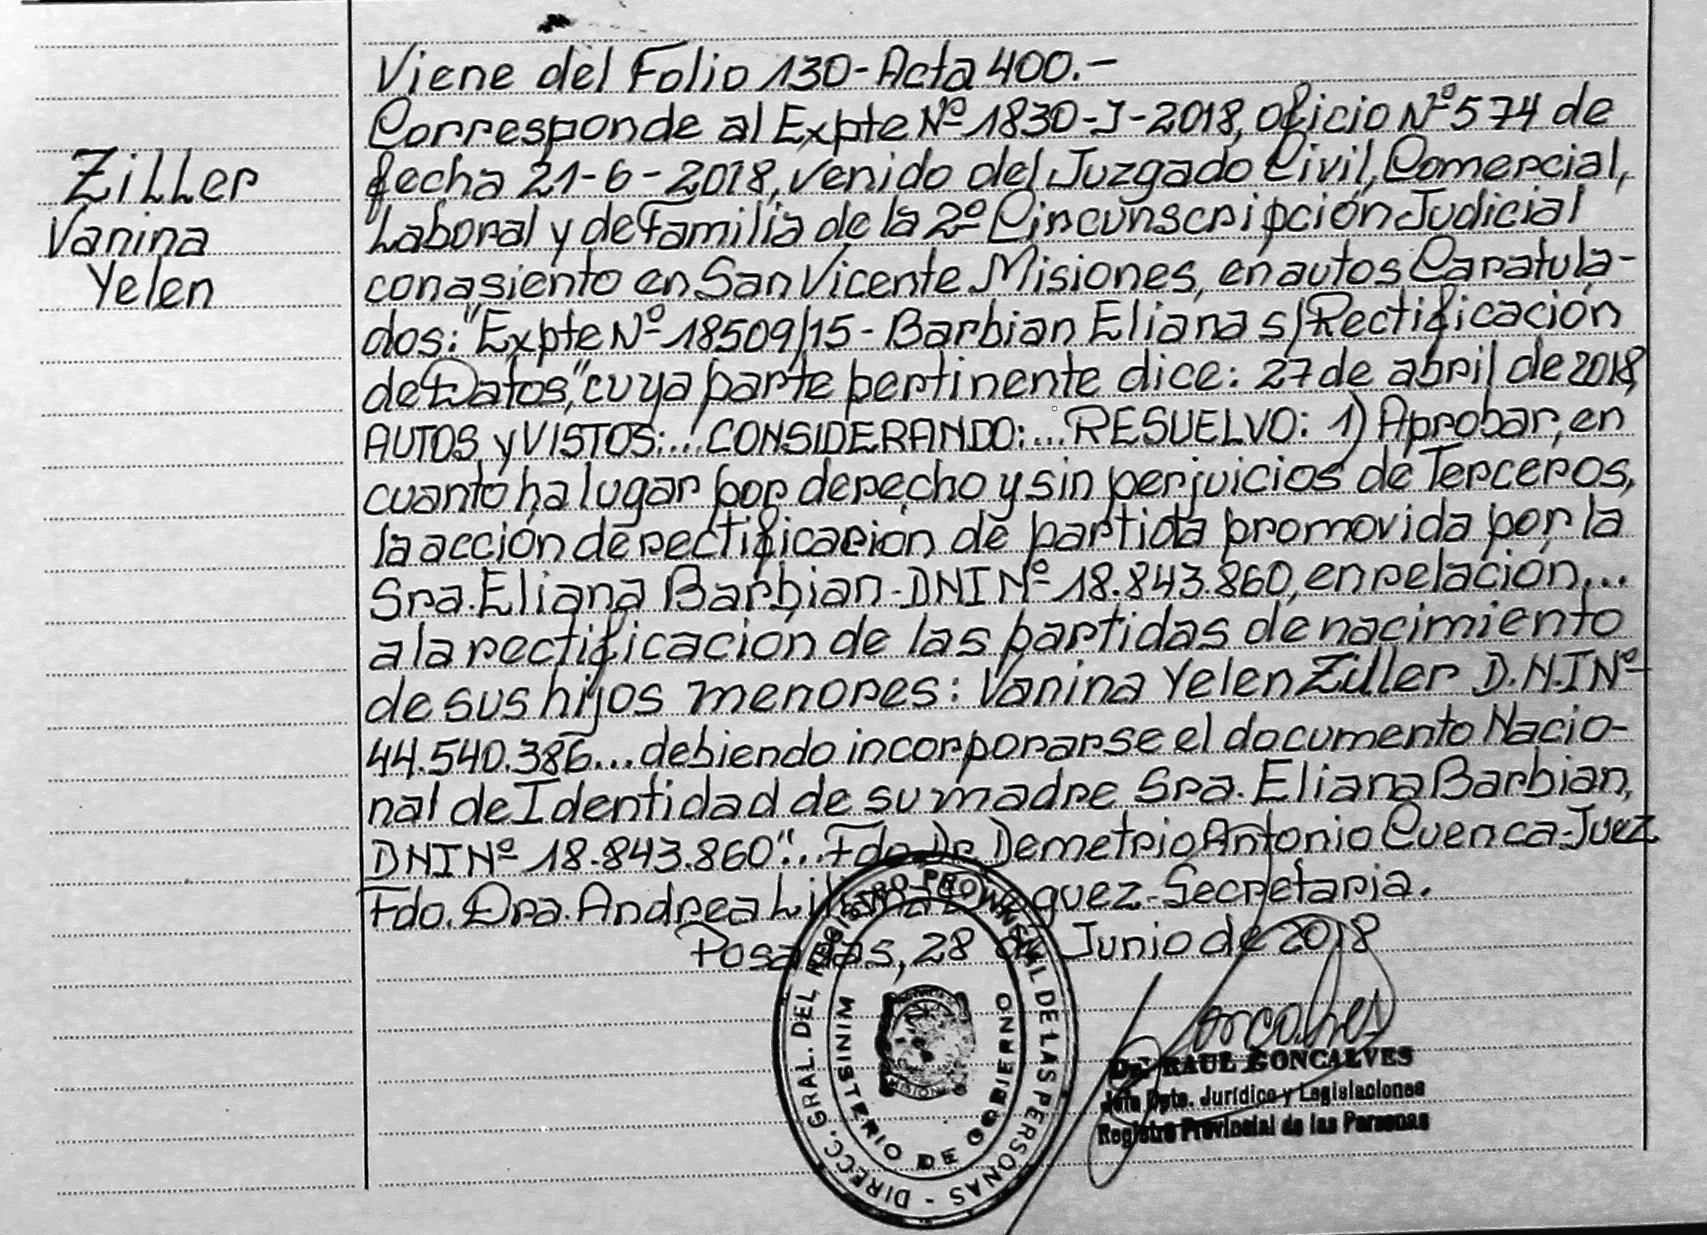 Viene del Folio 130-Acta 400.-
Corresponde al Expte Nº 1830-J-2018, oficio Nº 574 de
Ziller
fecha 21-6-2018, venido del Juzgado Civil, Comercial,
Vanina
Laboral y de Familia de la 2º Circunscripción Judicial
Yelen
con asiento en San Vicente Misiones, en autos Caratula-
dos: "Expte Nº 18509/15 - Barbian Eliana s/Rectificación
de Datos", cuya parte pertinente dice: 27 de abril de 2018,
AUTOS y VISTOS:... CONSIDERANDO:... RESUELVO: 1) Aprobar, en
cuanto ha lugar por derecho y sin perjuicios de Terceros,
la acción de rectificación de partida promovida por la
Sra. Eliana Barbian - DNI Nº 18.843.860, en relación...
a la rectificación de las partidas de nacimiento
de sus hijos menores: Vanina Yelen Ziller D.N.I Nº
44.540.386... debiendo incorporarse el documento Nacio-
nal de Identidad de su madre Sra. Eliana Barbian,
DNI Nº 18.843.860"... Fdo. Dr Demetrio Antonio Cuenca - Juez
Fdo. Dra. Andrea Secretaria.
Posadas, 28 de Junio de 2018
DIRECC. GRAL. DEL REGISTRO PROVINCIAL DE LAS PERSONAS -
MINISTERIO DE GOBIERNO
MISIONES
Dr. RAUL GONCALVES
Jefe Dpto. Jurídico y Legislaciones
Registro Provincial de las Personas